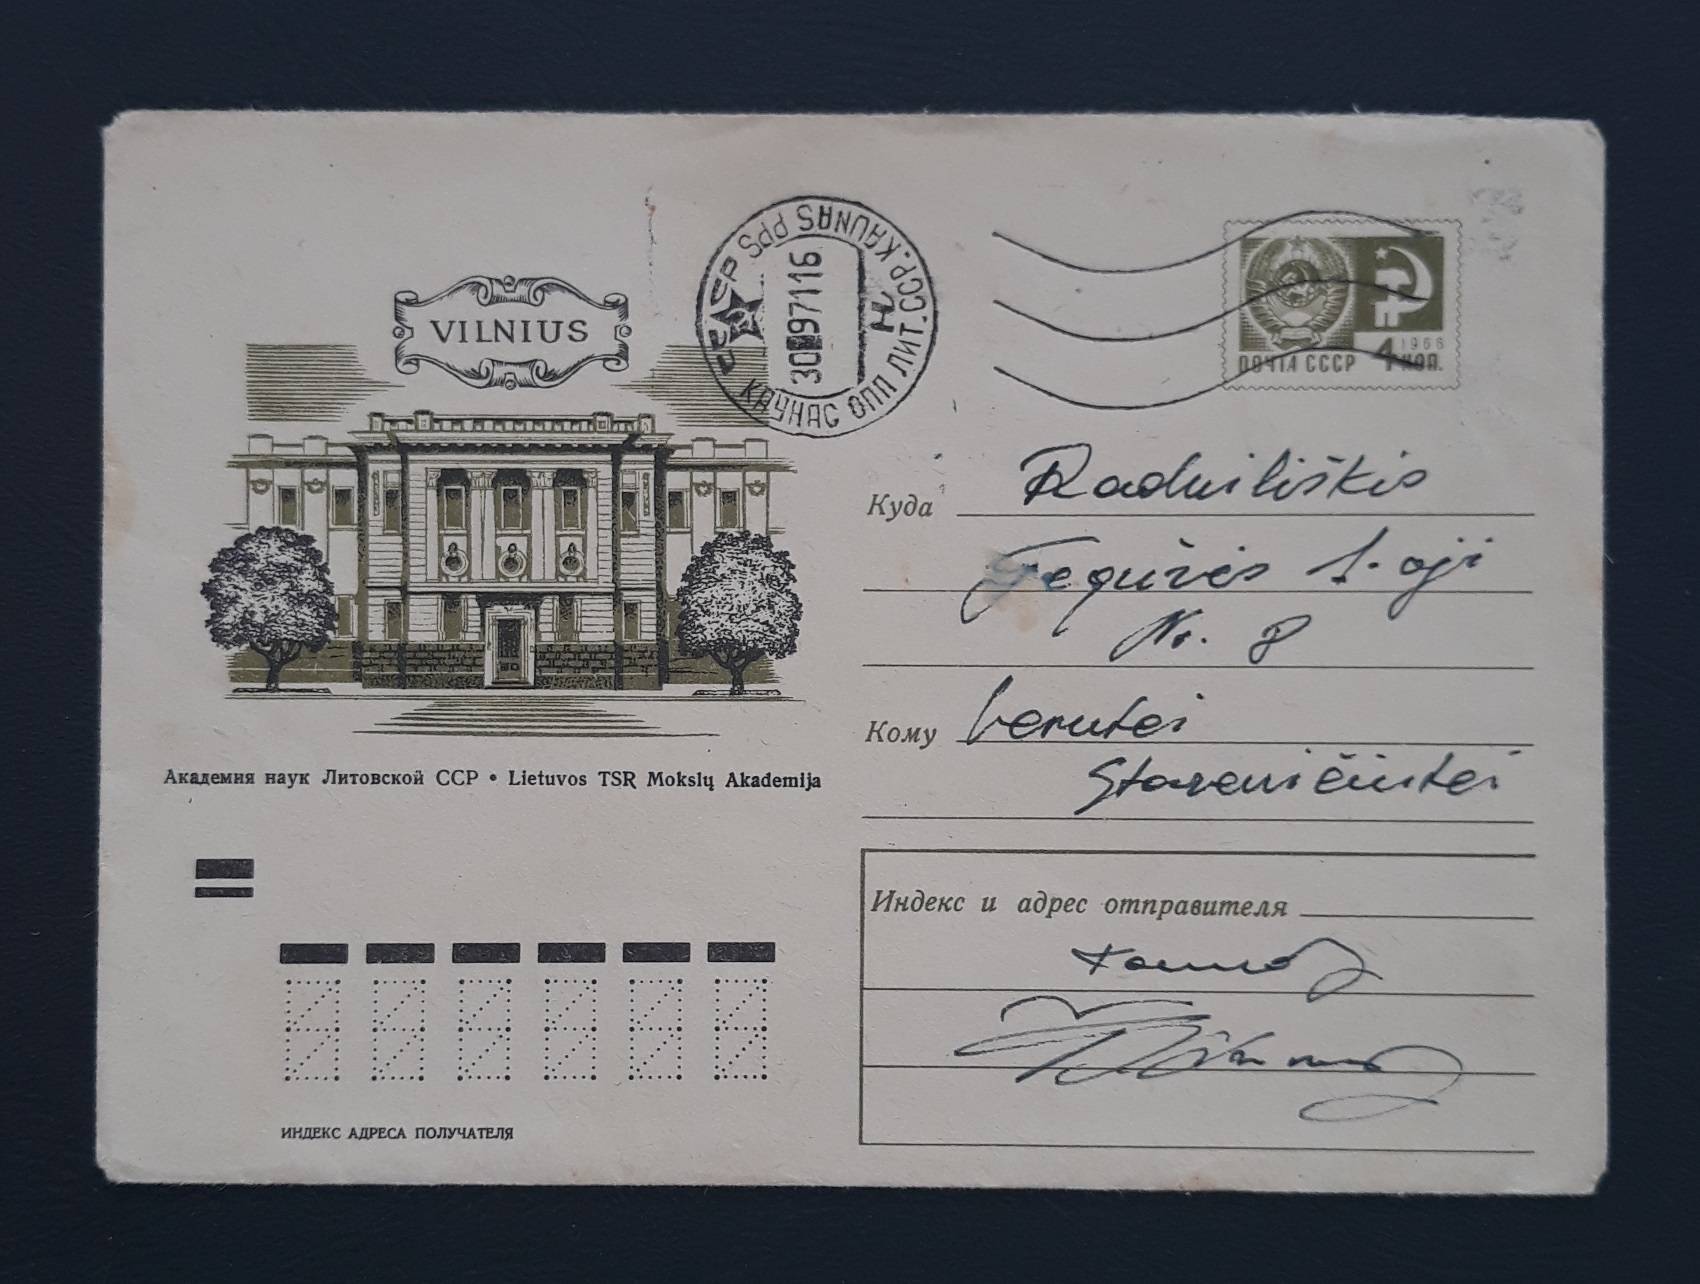 VILNIUS
СССР
KAUNAS PPS
КАУНАС ОПП ЛИТ. ССР.
Н
1966
ПОЧТА СССР 4 КОП.
Куда Radviliškis
Gegužės 1-oji
Nr. 8
Кому
Академия наук Литовской ССР • Lietuvos TSR Mokslų Akademija
Индекс и адрес отправителя
Kaunas
ИНДЕКС АДРЕСА ПОЛУЧАТЕЛЯ